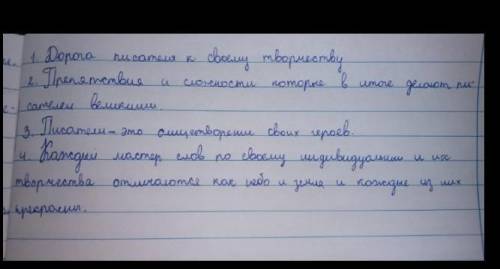 1. Дорога писателя к своему творчеству
2. Препятствия и сложности которые в итоге делают пи-
сателей великими.
3. Писатели - это олицетворении своих героев.
4. Каждый мастер слов по своему индивидуальны и их
творчества отличаются как небо и земля и каждые из них
прекрасны.